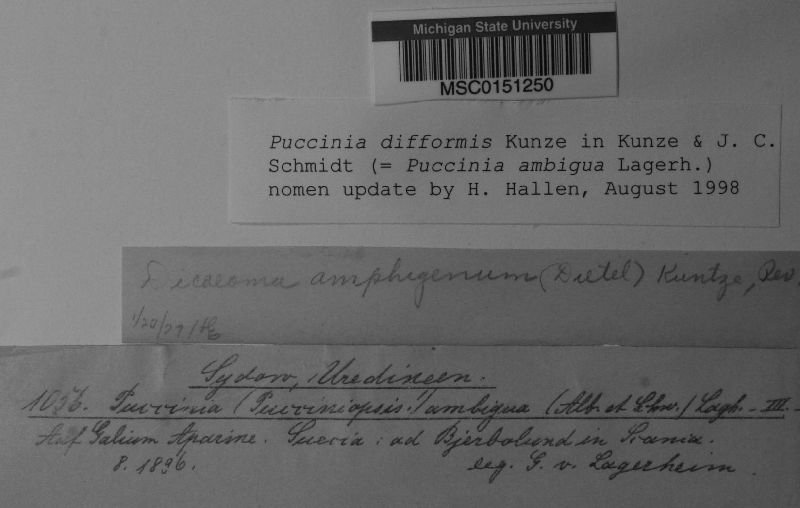 Michigan State University
MSC0151250
Puccinia difformis Kunze in Kunze & J. C.
Schmidt (= Puccinia ambigua Lagerh.)
nomen update by H. Hallen, August 1998
Dicaeoma amphigenum (Dietel) Kuntze, Rev.
Sydow, Uredineen.
1056. Puccinia (Pucciniopsis.) ambigua (Alb. et Schw.) Lagh. - III. -
Auf Galium Aparine. Suecia: ad Bjerbolund in Scania.
8. 1896. leg. G. v. Lagerheim